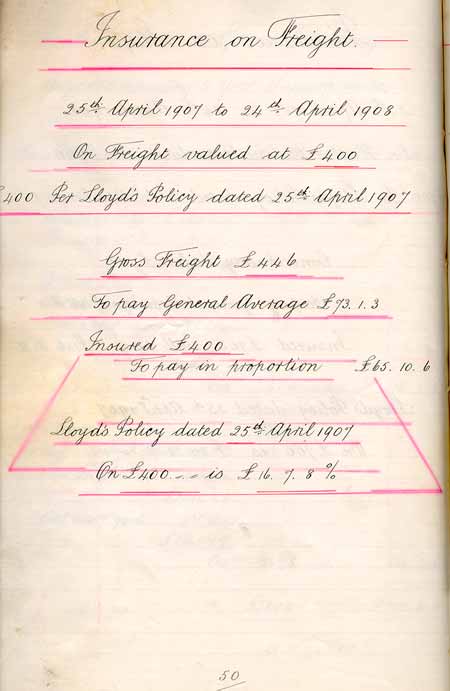 Insurance on Freight.
25th April 1907 to 24th April 1908
On Freight valued at £400
£400 Per Lloyd's Policy dated 25th April 1907
Gross Freight £446
To pay General Average £73.1.3
Insured £400
To pay in proportion £65.10.6
Lloyd's Policy dated 25th April 1907
On £400 .. .. is £16.7.8 %
50